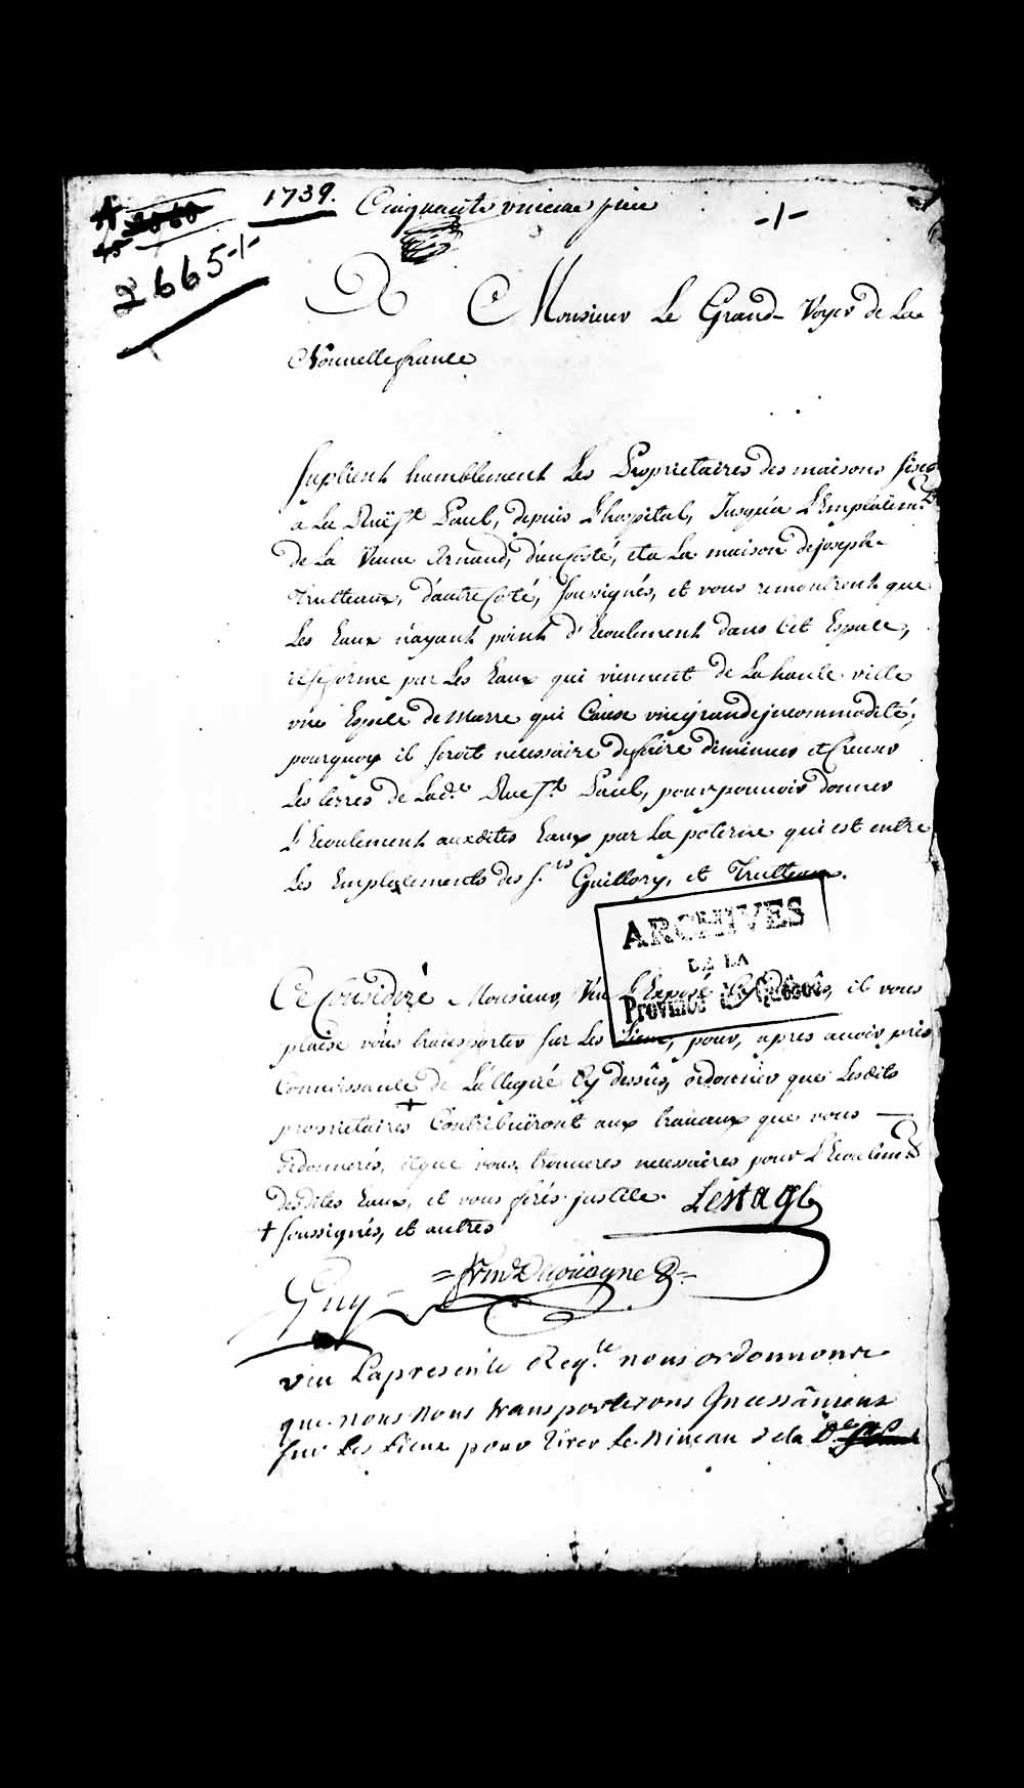 1739. Cinquante unieme piece -1-
2665-1-
A Monsieur Le Grand Voyer de La
Nouuelle france
Suplient humblement Les Proprietaires des maisons sises
a La Ruë St Paul, depuis L'hospital, Jusqu'a L'Emplacemt.
de La Veuue Arnaud, d'un Costé, et a La maison de joseph
Trutteaux, d'autre Costé, soussignés, et vous remontrent que
Les Eaux n'ayant point d'Ecoulement dans Cet Espace,
il se forme par Les Eaux qui viennent de La haute ville
vne Espece de Marre qui Cause vne grande jncommodité;
pourquoy il seroit necessaire de faire diminuer et Creuser
Les terres de Lade. Rue St. Paul, pour pouuoir donner
L'Ecoulement auxdites Eaux par La poterne qui est entre
Les Emplacements des Srs. Guillory, et Trutteaux.
ARCHIVES
DE LA
Province de Québec
Ce Consideré Monsieur, Vu L'Exposé Cy dessûs, il vous
plaise vous transporter sur Les Lieux, pour, apres auoir pris
Connoissance de L'allegué Cy dessûs, ordonner que Lesdits
proprietaires + Contribuëront aux trauaux que vous
ordonnerés, et que vous trouueres necessaires pour L'Ecoulemt.
desdites Eaux, et vous ferés justice. Lestage
+ soussignés, et autres
Guy
vu La presente Reqte. nous ordonnons
que nous nous transporterons Incessâment
sur Les Lieux pour tirer Le Niueau de la De.